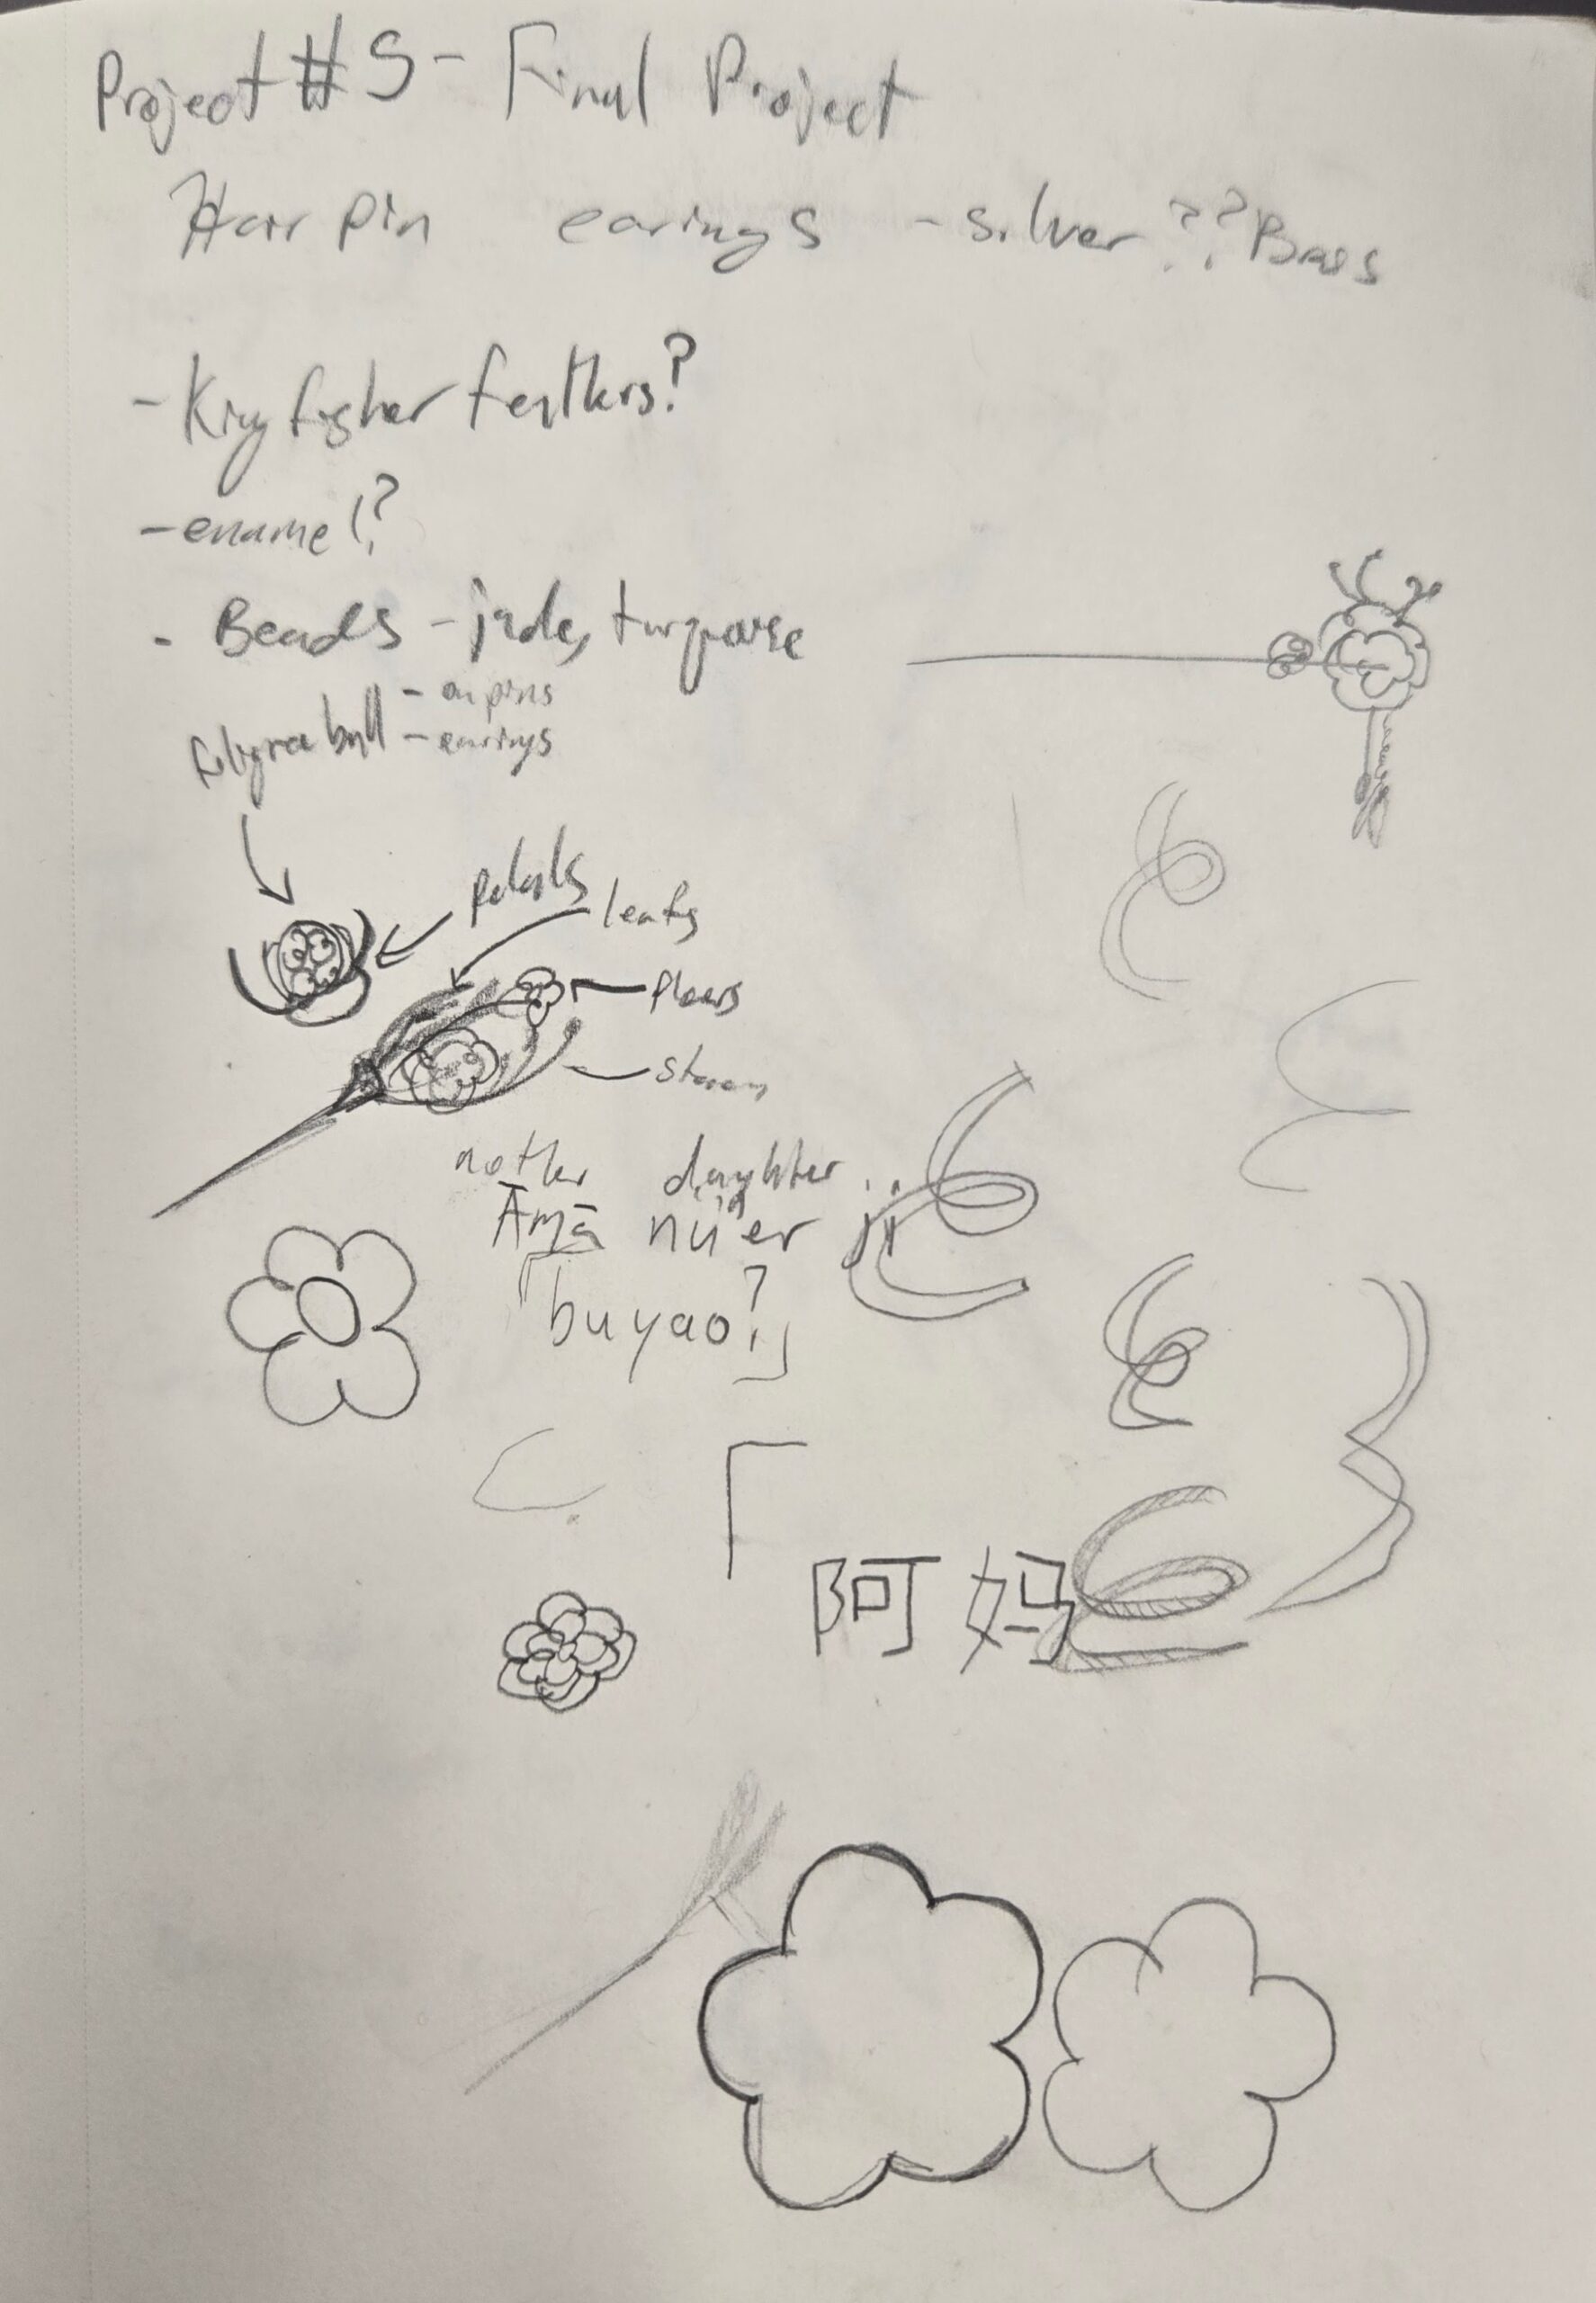 Project #5 - Final Project
Hair pin earings - silver?? Brass
- King fisher feathers?
- enamel?
- Beads - jade, turquoise
- on pins
filigree ball - earings
petals
leafs
stamen
mother daughter
Āmā nǚ'er
「buyao?」
「
阿妈